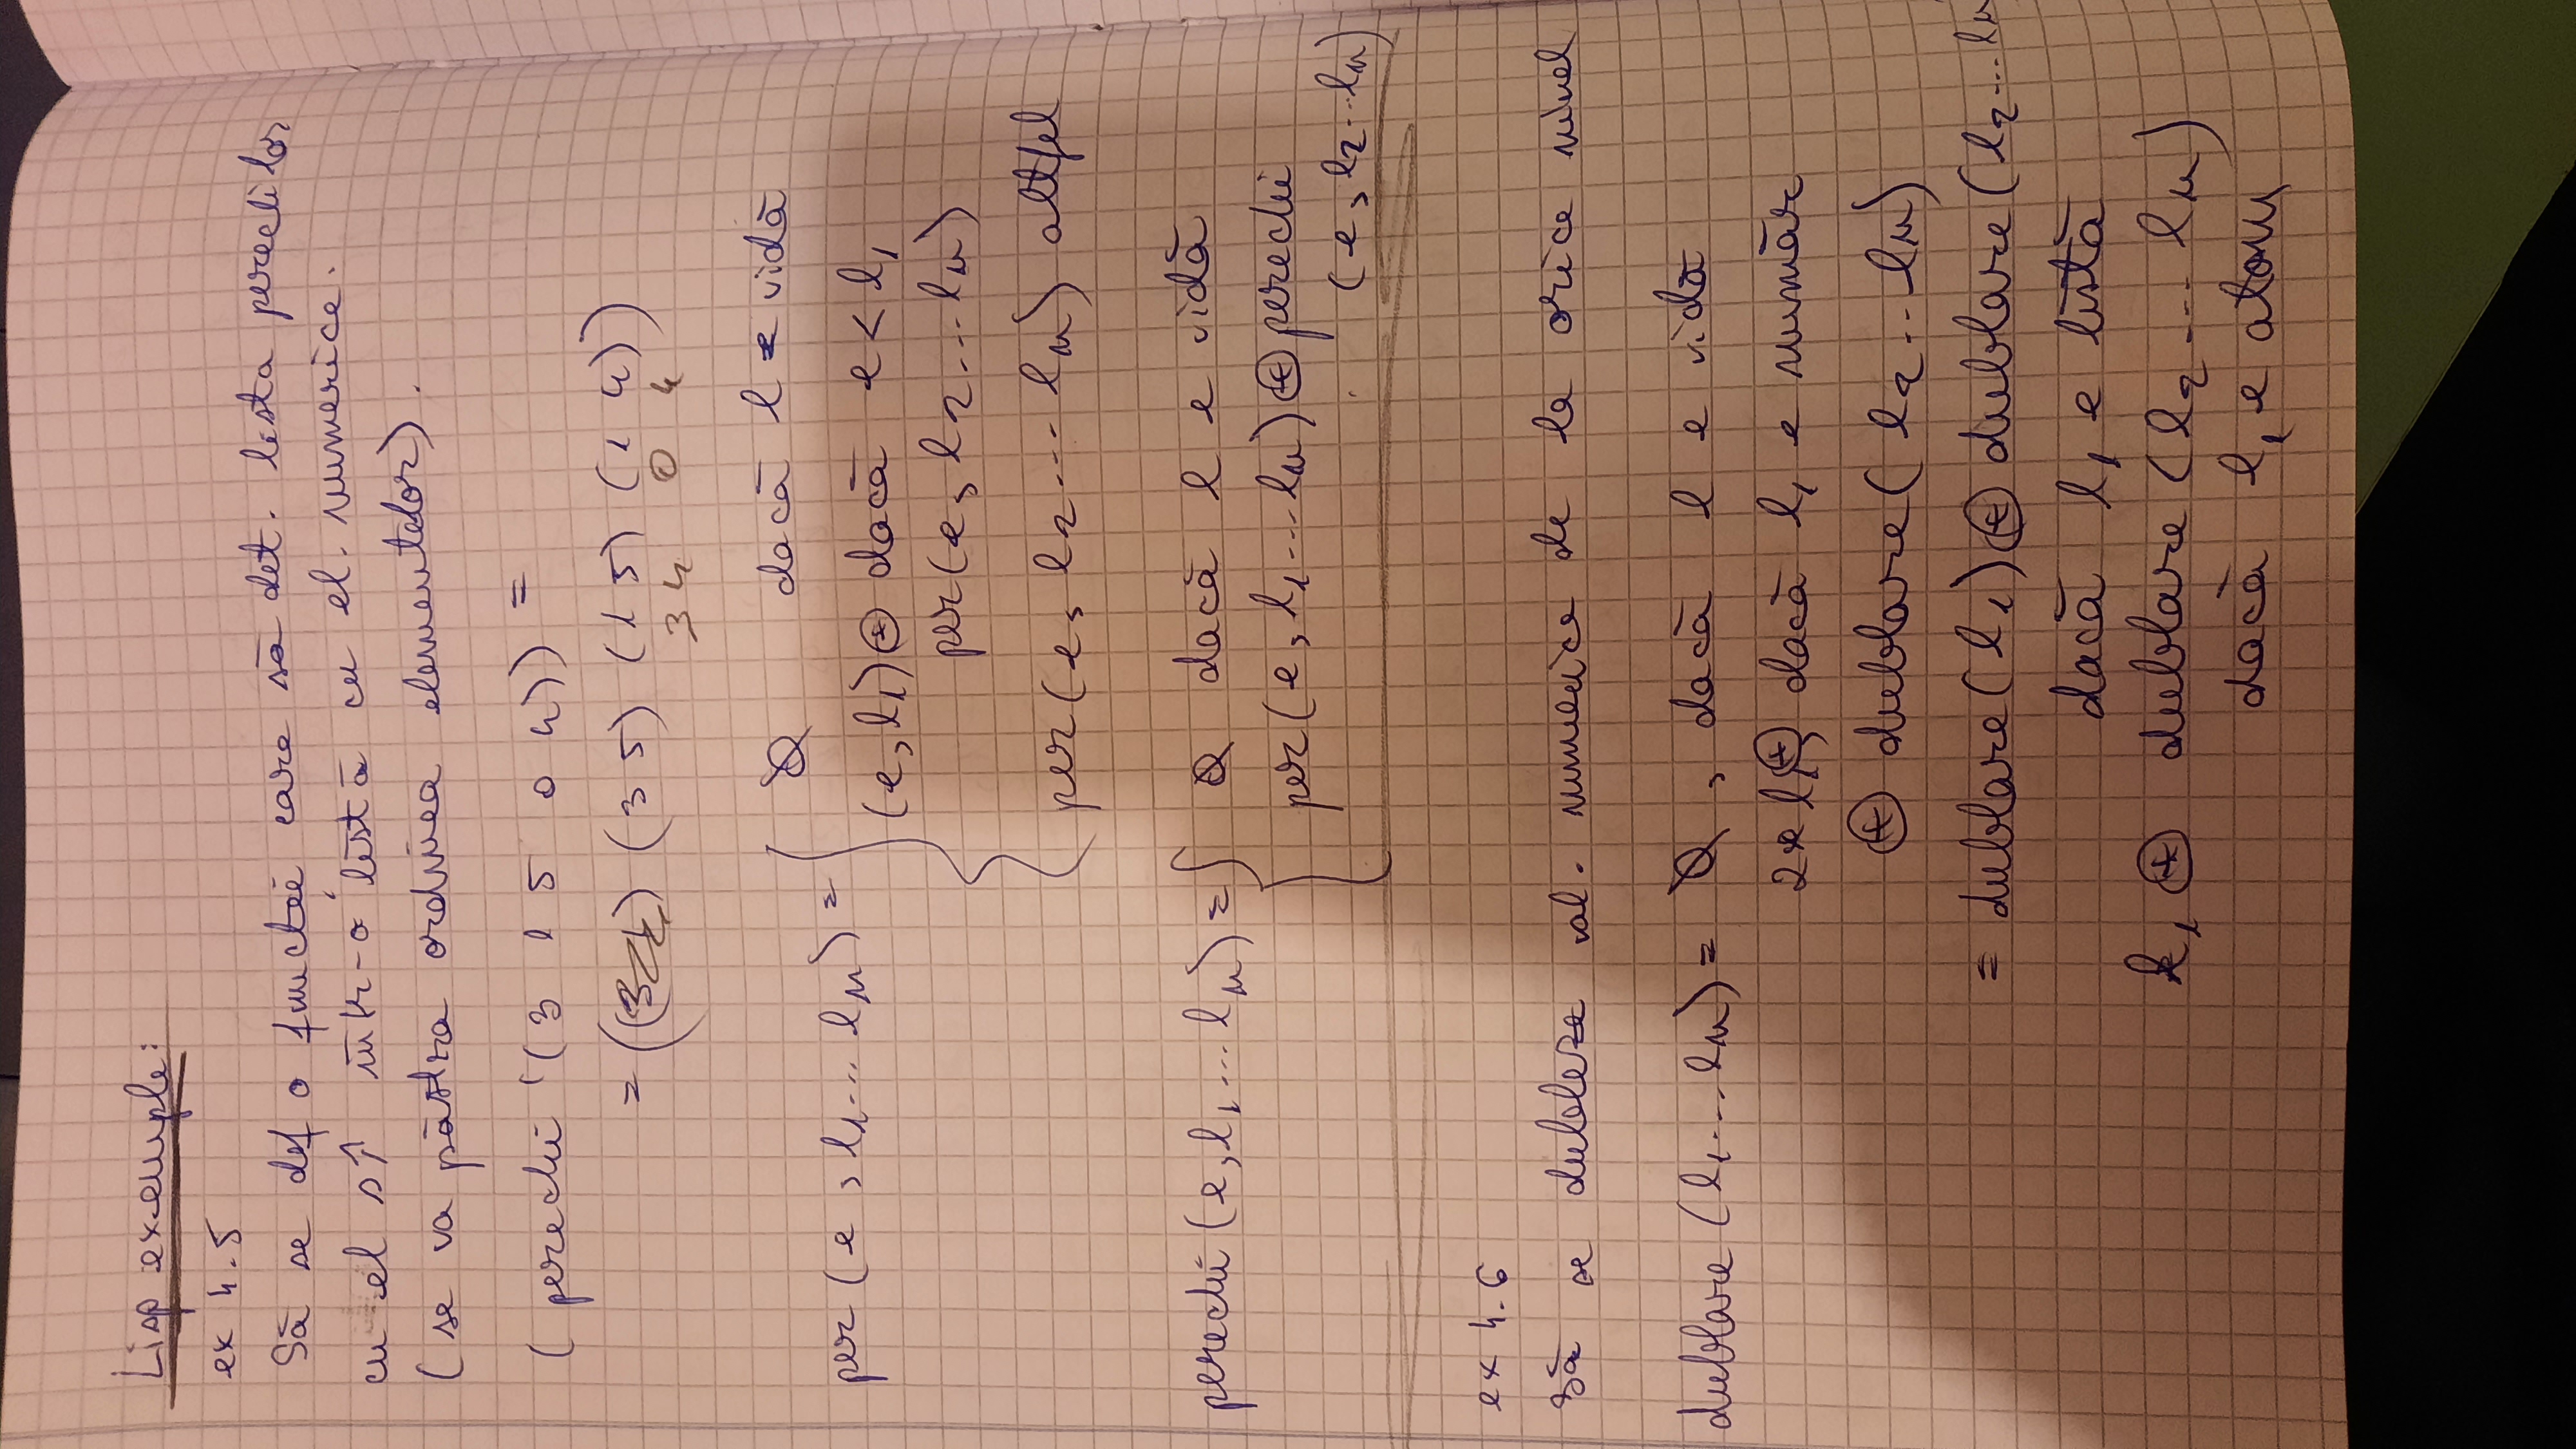 Lisp exemple:
ex 4.5
Să se def o funcție care să det. lista perechilor
cu el s↑ într-o listă cu el. numerice.
(se va păstra ordinea elementelor).
(perechi '(3 1 5 0 4)) =
= ( (3 5) (1 5) (1 4))
3 4 0 4
per(e, l1... ln) = { ∅ dacă l e vidă
(e, l1) ⊕ dacă e < l1
per(e, l2... ln)
per(e, l2 ... ln) altfel
perechi(e, l1... ln) = { ∅ dacă l e vidă
per(e, l1... ln) ⊕ perechi
(e, l2...ln)
ex 4.6
Să se dubleze val. numerice de la orice nivel
dublare(l1... ln) = ∅, dacă l e vidă
2* l1 ⊕, dacă l1 e număr
⊕ dublare(l2... ln)
= dublare(l1) ⊕ dublare(l2... ln
dacă l1 e listă
l1 ⊕ dublare(l2 ... ln)
dacă l1 e atom